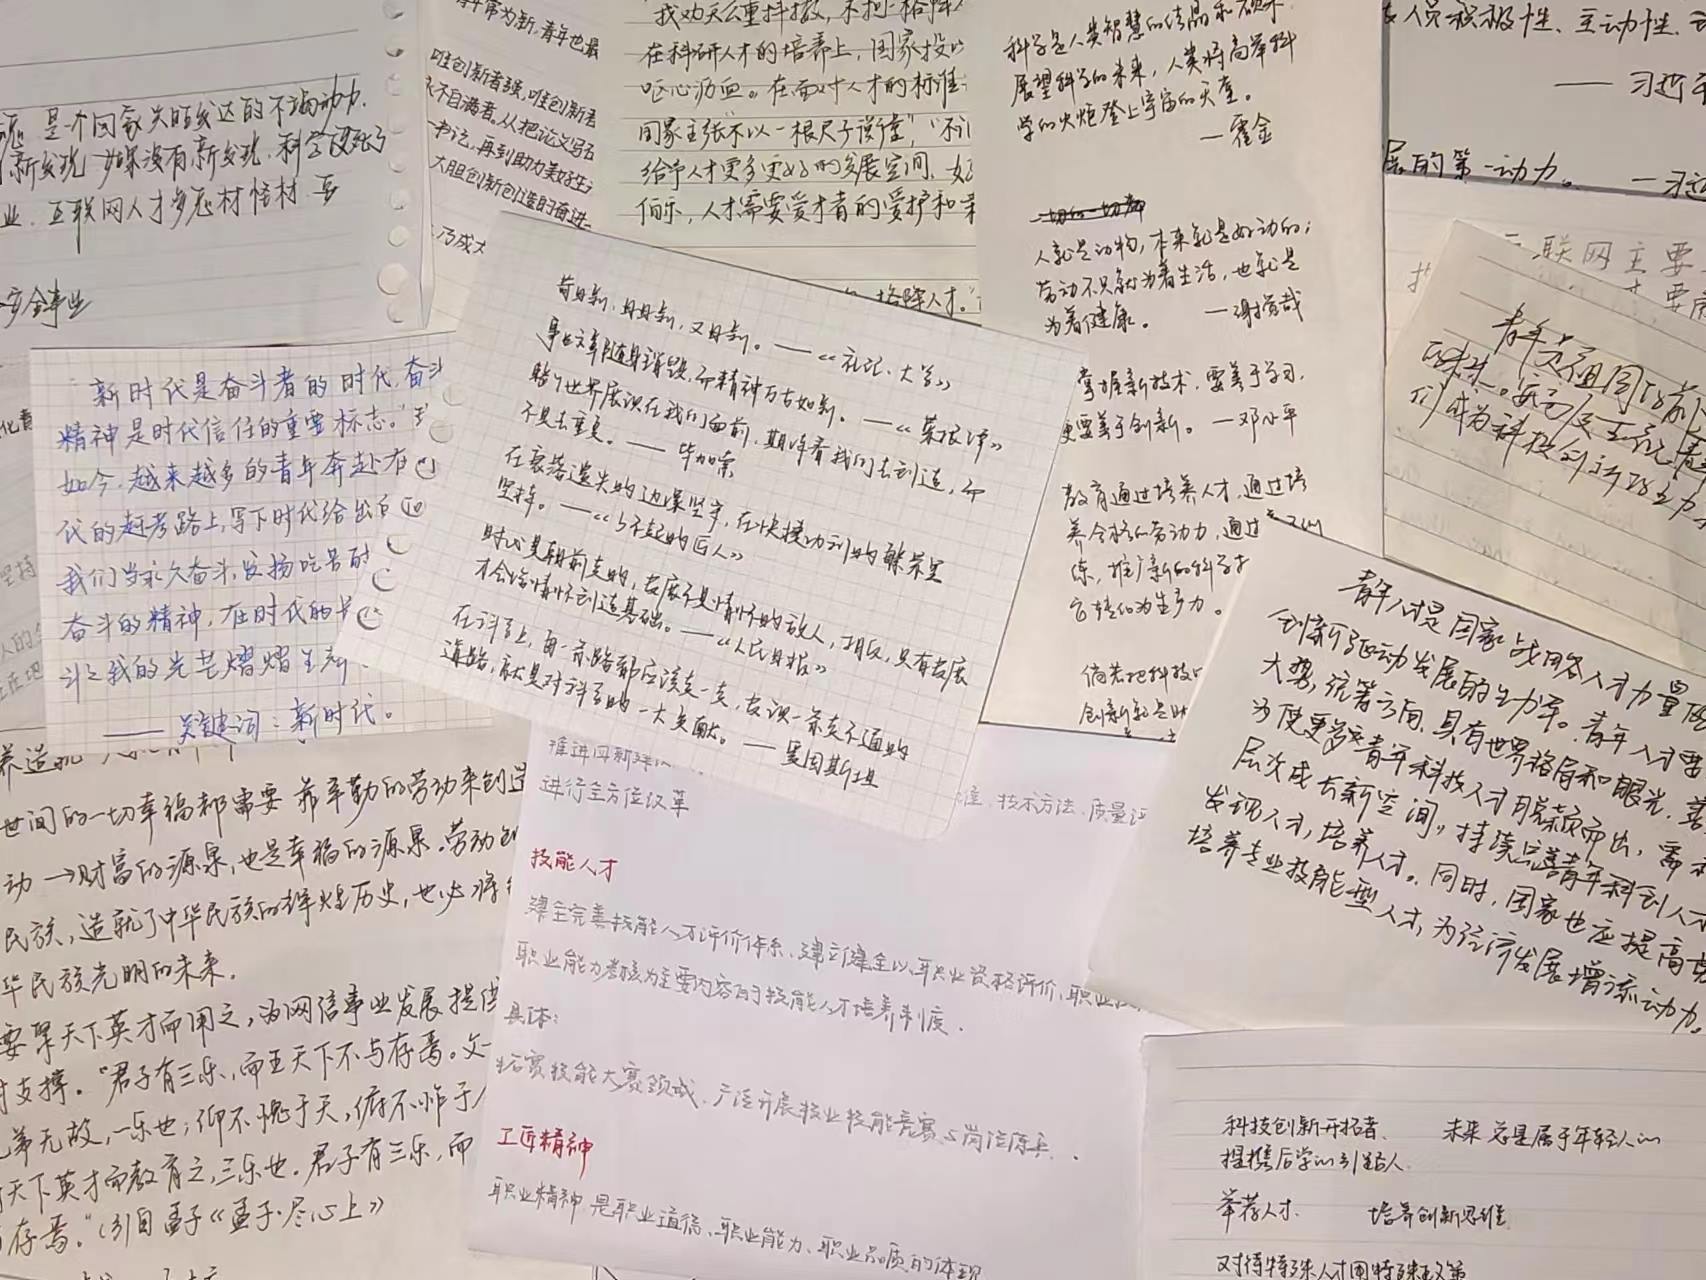 是个国家兴旺发达的不竭动力.
新发现,如果没有新发现,科学没死了
业.互联网人才多怪材怪材.要
安全事业
青年常为新,青年也最
唯创新者强,唯创新者
永不自满者。从把论文写在
书记,再到助力美好生活
大胆创新创造的奋进
乃成大
我劝天公重抖擞,不拘一格降人
在科研人才的培养上,国家投以
呕心沥血。在面对人才的标准
国家主张"不以一根尺子谈量","不让
给予人才更多更好的发展空间.
伯乐,人才需要爱才者的爱护和
格降人才."
科学是人类智慧的结晶和硕果.
展望科学的未来,人类将高举科
学的火炬登上宇宙的天堂。
—霍金
人就是动物,本来就是好动的;
劳动不只就为着生活,也就是
为着健康。 —谢觉哉
掌握新技术,要善于学习,
更要善于创新。 —邓小平
教育通过培养人才,通过培
养合格的劳动力,通过
炼,推广新的科学技
它转化为生产力。
倘若把科技
创新就是
人员积极性、主动性、
——习近平
展的第一动力。 —习近
互联网主要
青年是祖国的前
的未来。
们成为科技创新的主力
新时代是奋斗者的时代,奋斗
精神是时代信任的重要标志。
如今,越来越多的青年奔赴在
代的赶考路上,写下时代给出的
我们当永久奋斗,发扬吃苦耐
奋斗的精神,在时代的
斗之我的光芒熠熠生辉
——关键词:新时代。
苟日新,日日新,又日新。——《礼记·大学》
事业文章随身销毁,而精神万古如新。——《菜根谭》
整个世界展现在我们面前,期待着我们去创造,而
不是去重复。——毕加索
在衰落遗失的边缘坚守,在快捷功利的繁荣里
坚持。——《了不起的匠人》
时代是朝前走的,发展不是情怀的敌人,相反,只有发展
才会给情怀创造基础。——《人民日报》
在科学上,每一条路都应该走一走,发现一条走不通的
道路,就是对科学的一大贡献。——爱因斯坦
青年人才是国家战略人才力量
创新驱动发展的生力军。青年人才要
大势,统筹方向,具有世界格局和眼光,善
为使更多青年科技人才脱颖而出,需
层次成长新空间,持续完善青年科创人才
发现人才,培养人才。同时,国家也应提高
培养专业技能型人才,为经济发展增添动力。
世间的一切幸福都需要靠辛勤的劳动来创造
动→财富的源泉,也是幸福的源泉.劳动创
民族,造就了中华民族的辉煌历史,也必将
华民族光明的未来.
要聚天下英才而用之,为网信事业发展提供
支撑。"君子有三乐,而王天下不与存焉。父
兄弟无故,一乐也;仰不愧于天,俯不怍于
天下英才而教育之,三乐也.君子有三乐,而
存焉."(引自孟子《孟子·尽心上》
进行全方位改革
技术方法、质量
技能人才
建立完善技能人才评价体系、建立健全以职业资格评价、职业
职业能力考核为主要内容的技能人才培养制度.
具体:
拓宽技能大赛领域、广泛开展技业技能竞赛与岗位练兵..
工匠精神
职业精神 是职业道德、职业能力、职业品质的体现
科技创新开拓者. 未来总是属于年轻人的
提携后学的引路人.
举荐人才. 培养创新思维
对待特殊人才用特殊政策